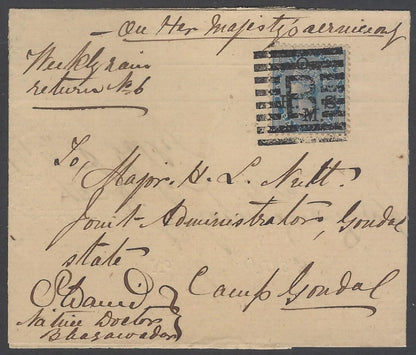 On Her Majesty's service
Weekly rain
return No 6
B
To,
Major. H. L. Nutt.
Joint Administrator, Gondal
state
Camp Gondal
Native Doctor